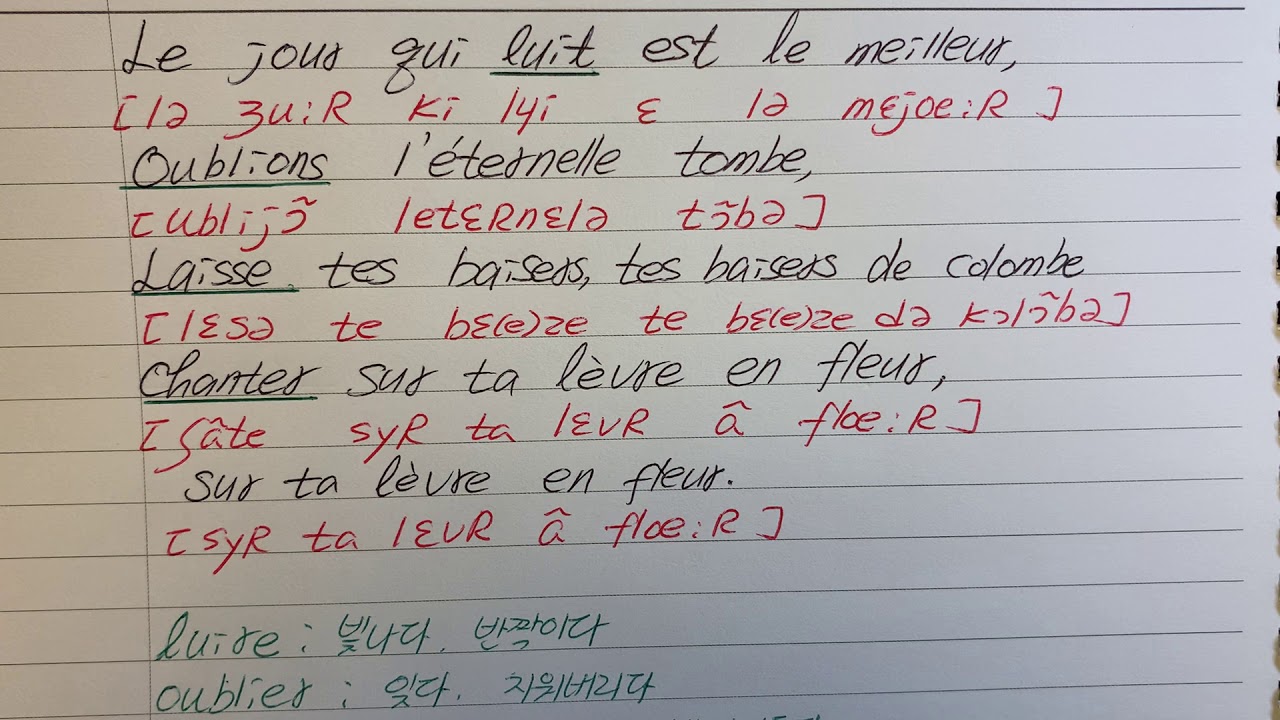 Le jour qui luit est le meilleur,
[lə ʒu:R ki lyi ɛ lə mɛjœ:R]
Oublions l'éternelle tombe,
[ublijɔ̃ letɛRnɛlə tɔ̃bə]
Laisse tes baisers, tes baisers de colombe
[lɛsə te bɛ(e)ze te bɛ(e)ze də kɔlɔ̃bə]
Chanter sur ta lèvre en fleur,
[ʃɑ̃te syR ta lɛvR ɑ̃ flœ:R]
sur ta lèvre en fleur.
[syR ta lɛvR ɑ̃ flœ:R]
luire :빛나다. 반짝이다
oublier : 잊다. 지워버리다